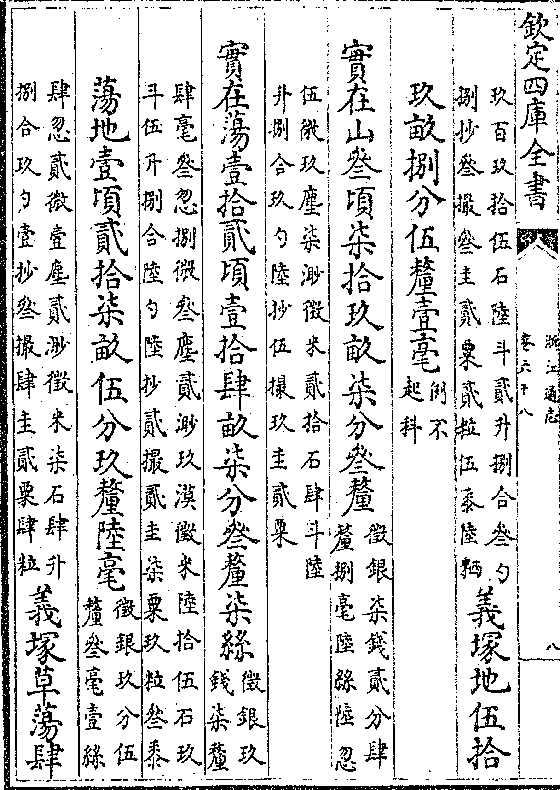 欽定四庫全書
浙江通志
卷六十八
八
玖百玖拾伍石陸斗貳升捌合叁勺
捌抄叁撮叁圭貳粟貳粒伍黍陸粞
義塚地伍拾
玖畝捌分伍釐壹毫
例不
起科
實在山叁頃柒拾玖畝柒分叁釐
徵銀柒錢貳分肆
釐捌毫陸絲陸忽
伍微玖塵柒渺徵米貳拾石肆斗陸
升捌合玖勺陸抄伍撮玖圭貳粟
實在蕩壹拾貳頃壹拾肆畝柒分叁釐柒絲
徵銀玖
錢柒釐
肆毫叁忽捌微叁塵貳渺玖漠徵米陸拾伍石玖
斗伍升捌合陸勺陸抄貳撮貳圭柒粟玖粒叁黍
蕩地壹頃貳拾柒畝伍分玖釐陸毫
徵銀玖分伍
釐叁毫壹絲
肆忽貳微壹塵貳渺徵米柒石肆升
捌合玖勺壹抄叁撮肆圭貳粟肆粒
義塚草蕩肆